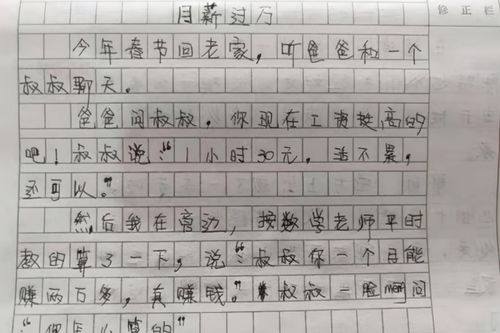 月薪过万
修正栏
今年春节回老家，听爸爸和一个
叔叔聊天。
爸爸问叔叔，你现在工资挺高的
吧！叔叔说：“1小时30元，活不累，
还可以。”
然后我在旁边，按数学老师平时
教的算了一下，说：“叔叔你一个月能
赚两万多，真赚钱。”叔叔一脸问
“你怎么算的”